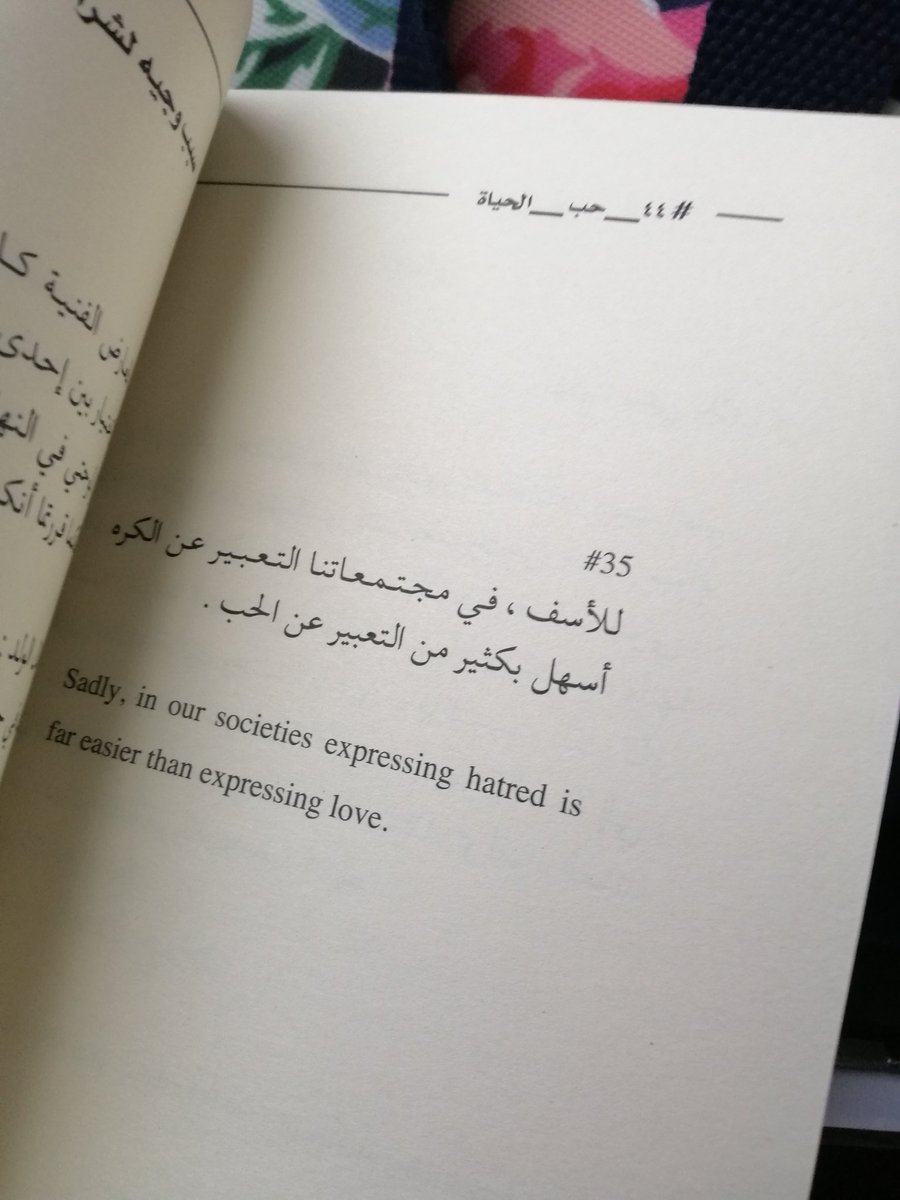 #٤٤__حب__الحياة
#35
للأسف ، في مجتمعاتنا التعبير عن الكره
أسهل بكثير من التعبير عن الحب .
Sadly, in our societies expressing hatred is
far easier than expressing love.
الفنية
بين إحدى
في